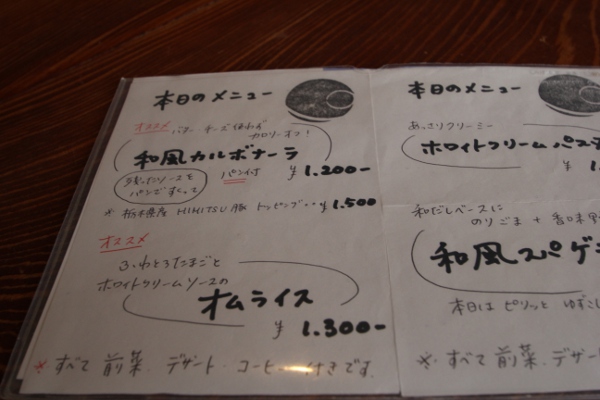 本日のメニュー
オススメ バター・チーズ使わず
カロリーオフ!
和風カルボナーラ
残ったソースを
パンですくって
パン付 ¥1.200-
※ 栃木県産 HIMITSU豚 トッピング‥¥1.500
オススメ
ふわとろたまごと
ホワイトクリームソースの
オムライス
¥1.300-
※すべて 前菜.デザート・コーヒー付きです
本日のメニュー
あっさりクリーミー
ホワイトクリームパス
¥1.
和だしベースに
のりごま + 香味野
和風スパゲ
本日は ピリッと ゆずこし
※すべて 前菜.デザー